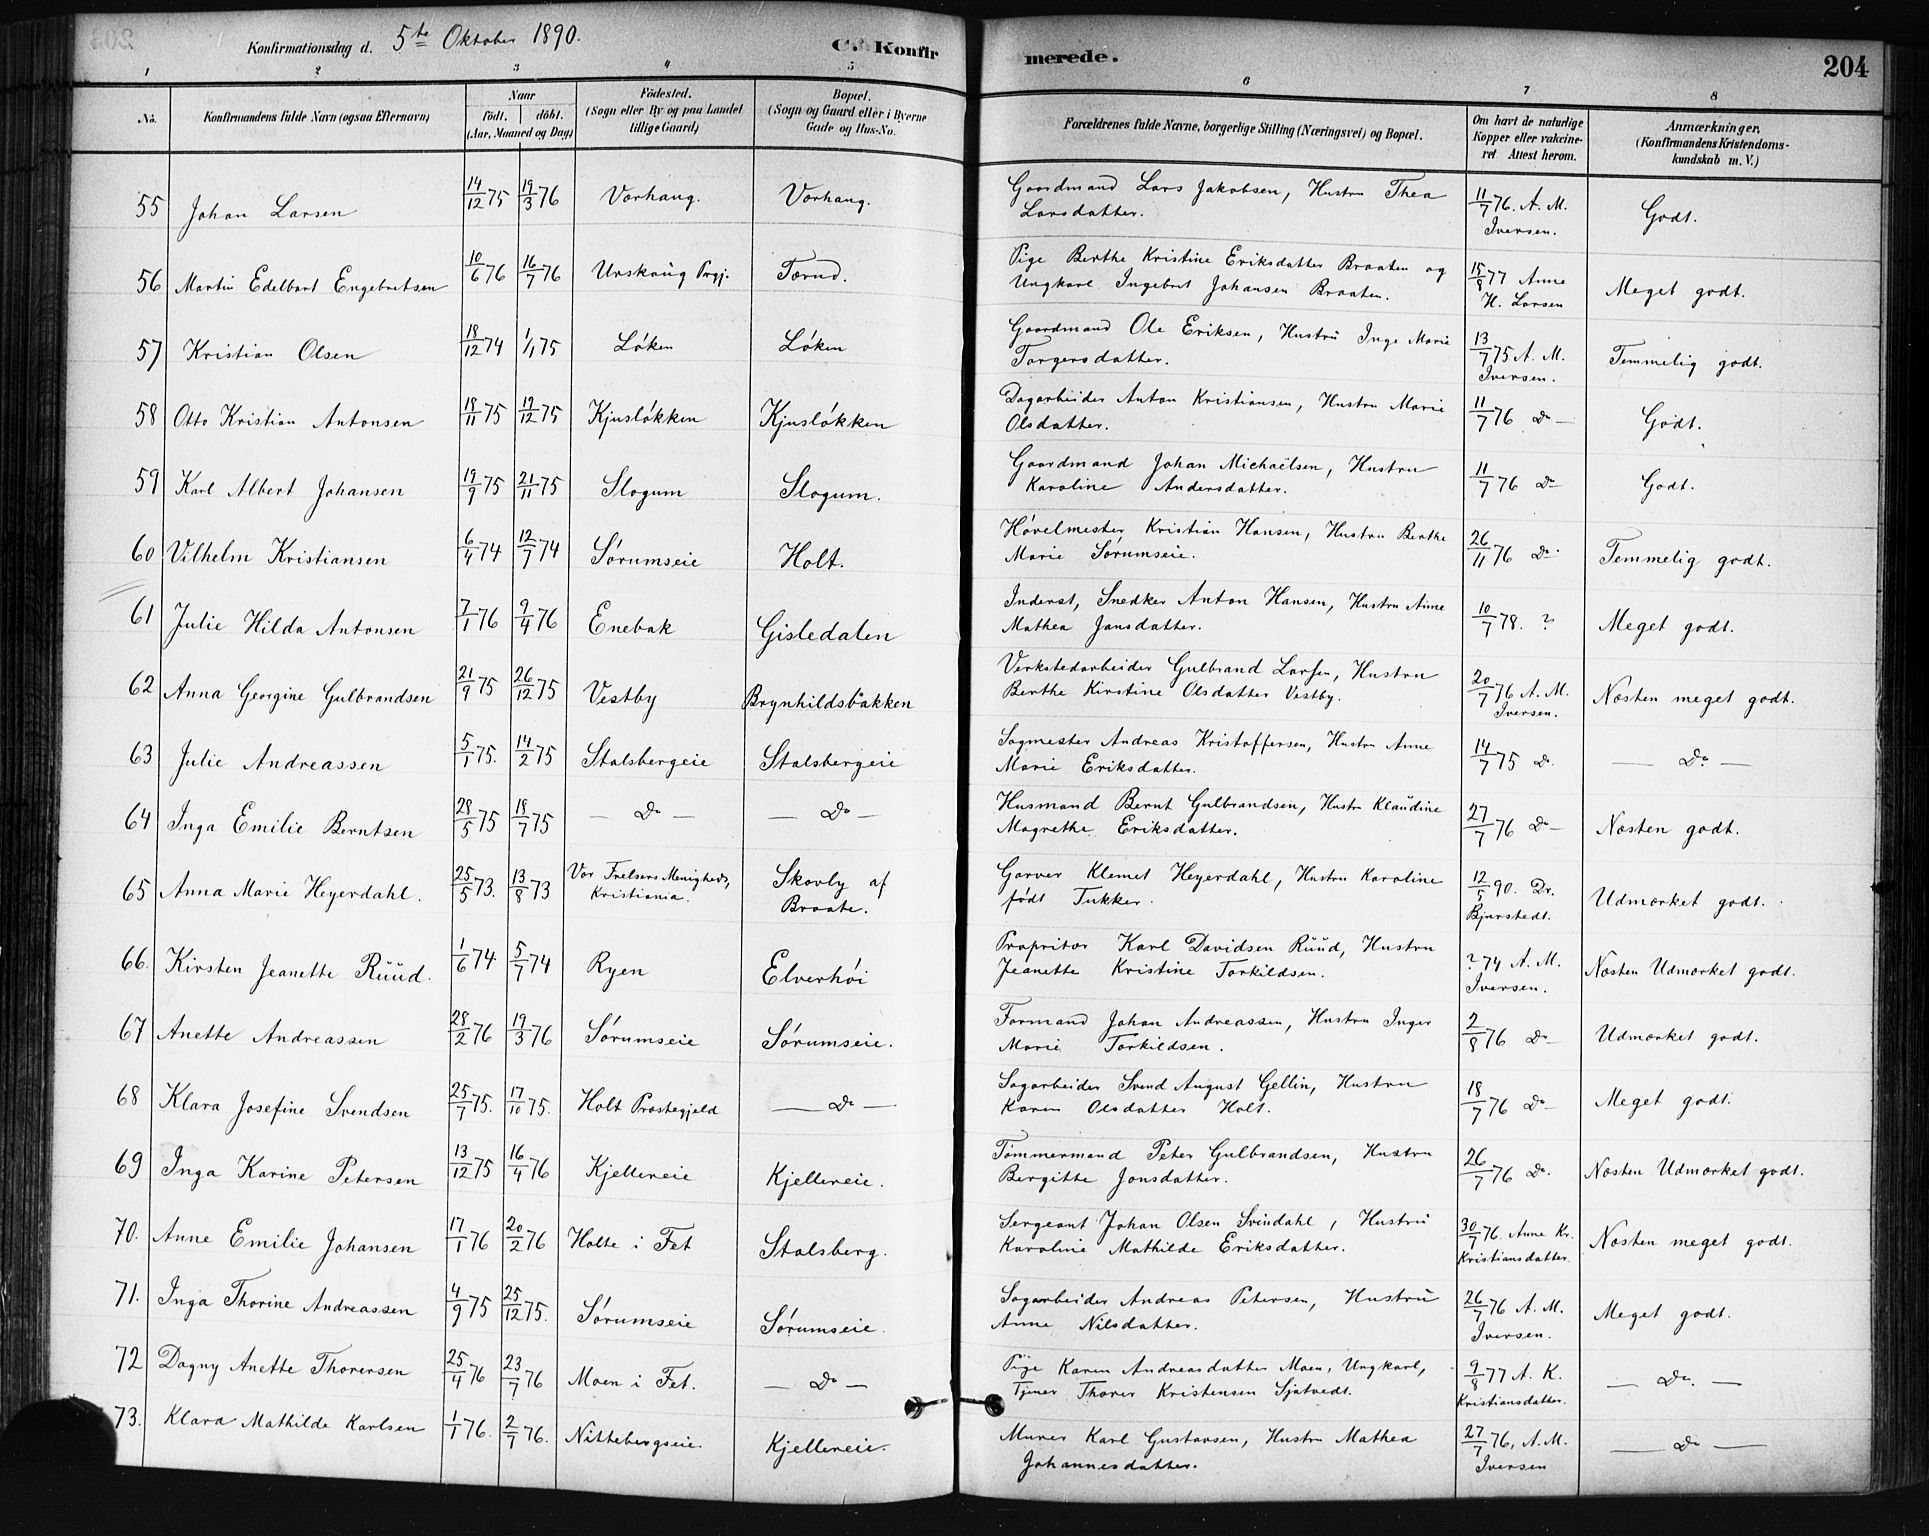 Konfirmationsdag d. 5te Oktober 1890. C. Konfirmerede. 204
1 2 3 4 5 6 7 8
No. Konfirmandens fulde Navn (ogsaa Efternavn) Naar födt. döbt. (Aar, Maaned og Dag) Födested. (Sogn eller By og paa Landet tillige Gaard) Bopæl. (Sogn og Gaard eller i Byerne Gade og Hus-No. Forældrenes fulde Navne, borgerlige Stilling (Næringsvei) og Bopæl. Om havt de naturlige Kopper eller vakcineret. Attest herom. Anmærkninger, (Konfirmandens Kristendomskundskab m. V.)
55 Johan Larsen 14/12 75 19/3 76 Vorhaug. Vorhaug. Gaardmand Lars Jakobsen, Hustru Thea Larsdatter. 11/7 76. A. M. Iversen. Godt.
56 Martin Edelbart Engebretsen 10/6 76 16/7 76 Urskoug Prgj. Tærud. Pige Berthe Kristine Eriksdatter Braaten og Ungkarl Ingebret Johansen Braaten. 15/8 77 Anne H. Larsen Meget godt.
57 Kristian Olsen 18/12 74 1/1 75 Löken Löken Gaardmand Ole Eriksen, Hustru Inge Marie Torgersdatter. 13/7 75 A. M. Iversen. Temmelig godt.
58 Otto Kristian Antonsen 18/11 75 19/12 75 Kjuslökken Kjuslökken Dagarbeider Anton Kristiansen, Hustru Marie Olsdatter. 11/7 76 Do — Godt.
59 Karl Albert Johansen 19/9 75 21/11 75 Slogum Slogum. Gaardmand Johan Michaëlsen, Hustru Karoline Andersdatter. 11/7 76 Do Godt.
60 Vilhelm Kristiansen 6/4 74 12/7 74 Sörumseie Holt. Hövelmester Kristian Hansen, Hustru Berthe Marie Sörumseie. 26/11 76 Do Temmelig godt.
61 Julie Hilda Antonsen 7/1 76 9/4 76 Enebak Gisledalen Inderst, Snedker Anton Hansen, Hustru Anne Mathea Jansdatter. 10/7 78. ? Meget godt.
62 Anna Georgine Gulbrandsen 21/9 75 26/12 75 Vestby Brynhildsbakken Verkstedarbeider Gulbrand Larsen, Hustru Berthe Kirstine Olsdatter Vestby. 20/7 76 A. M. Iversen. Næsten meget godt.
63 Julie Andreassen 5/1 75. 14/2 75 Stalsbergeie Stalsbergeie Sagmester Andreas Kristoffersen, Hustru Anne Marie Eriksdatter. 14/7 75 Do — Do —
64 Inga Emilie Berntsen 28/5 75 18/7 75 — Do — — Do — Husmand Bernt Gulbrandsen, Hustr Klaudine Magrethe Eriksdatter. 27/7 76 Do — Næsten godt.
65 Anna Marie Heyerdahl. 25/5 73. 13/8 73 Vor Frelsers Menigheds, Kristiania. Skovly af Braate. Garver Klemet Heyerdahl, Hustru Karoline født Tukker. 12/5 90. Dr. Bjørstedt. Udmærket godt.
66. Kirsten Jeanette Ruud. 1/6 74 5/7 74 Ryen Elverhöi Propritær Karl Davidsen Ruud, Hustru Jeanette Kristine Torkildsen. ? 74 A. M. Iversen. Næsten Udmærket godt.
67 Anette Andreassen 28/2 76 19/3 76 Sörumseie Sörumseie. Formand Johan Andreassen, Hustru Inger Marie Torkildsen. 2/8 76 Do — Udmærket godt.
68 Klara Josefine Svendsen 25/7 75. 17/10 75. Holt Præstegjeld — Do — Sagarbeider Svend August Gellin, Hustru Karen Olsdatter Holt. 18/7 76 Do — Meget godt.
69 Inga Karine Petersen 13/12 75 16/4 76 Kjellereie Kjellereie. Tømmermand Peter Gulbrandsen, Hustru Bergitte Jonsdatter. 26/7 76 Do. Næsten Udmærket godt.
70. Anne Emilie Johansen 17/1 76 20/2 76 Holte i Fet Stalsberg. Sergeant Johan Olsen Svindahl, Hustru Karoline Mathilde Eriksdatter. 30/7 76. Anne Kr. Kristiansdatter. Næsten meget godt.
71. Inga Thorine Andreassen 4/9 75 25/12 75. Sörumseie Sörumseie. Sagarbeider Andreas Petersen, Hustru Anne Nilsdatter. 26/7 76 A. M. Iversen. Meget godt.
72 Dagny Anette Thorersen 25/4 76 23/7 76 Moen i Fet. — Do — Pige Karen Andreasdatter Moen, Ungkarl, Tjener Thorer Kristensen Sjatvedt. 9/8 77 A. K. Kristiansdatter. — Do. —
73. Klara Mathilde Karlsen 1/1 76. 2/7 76. Nittebergseie. Kjellereie. Murer Karl Gustavsen, Hustru Mathea Johannesdatter. 27/7 76, A. M. Iversen — Do —